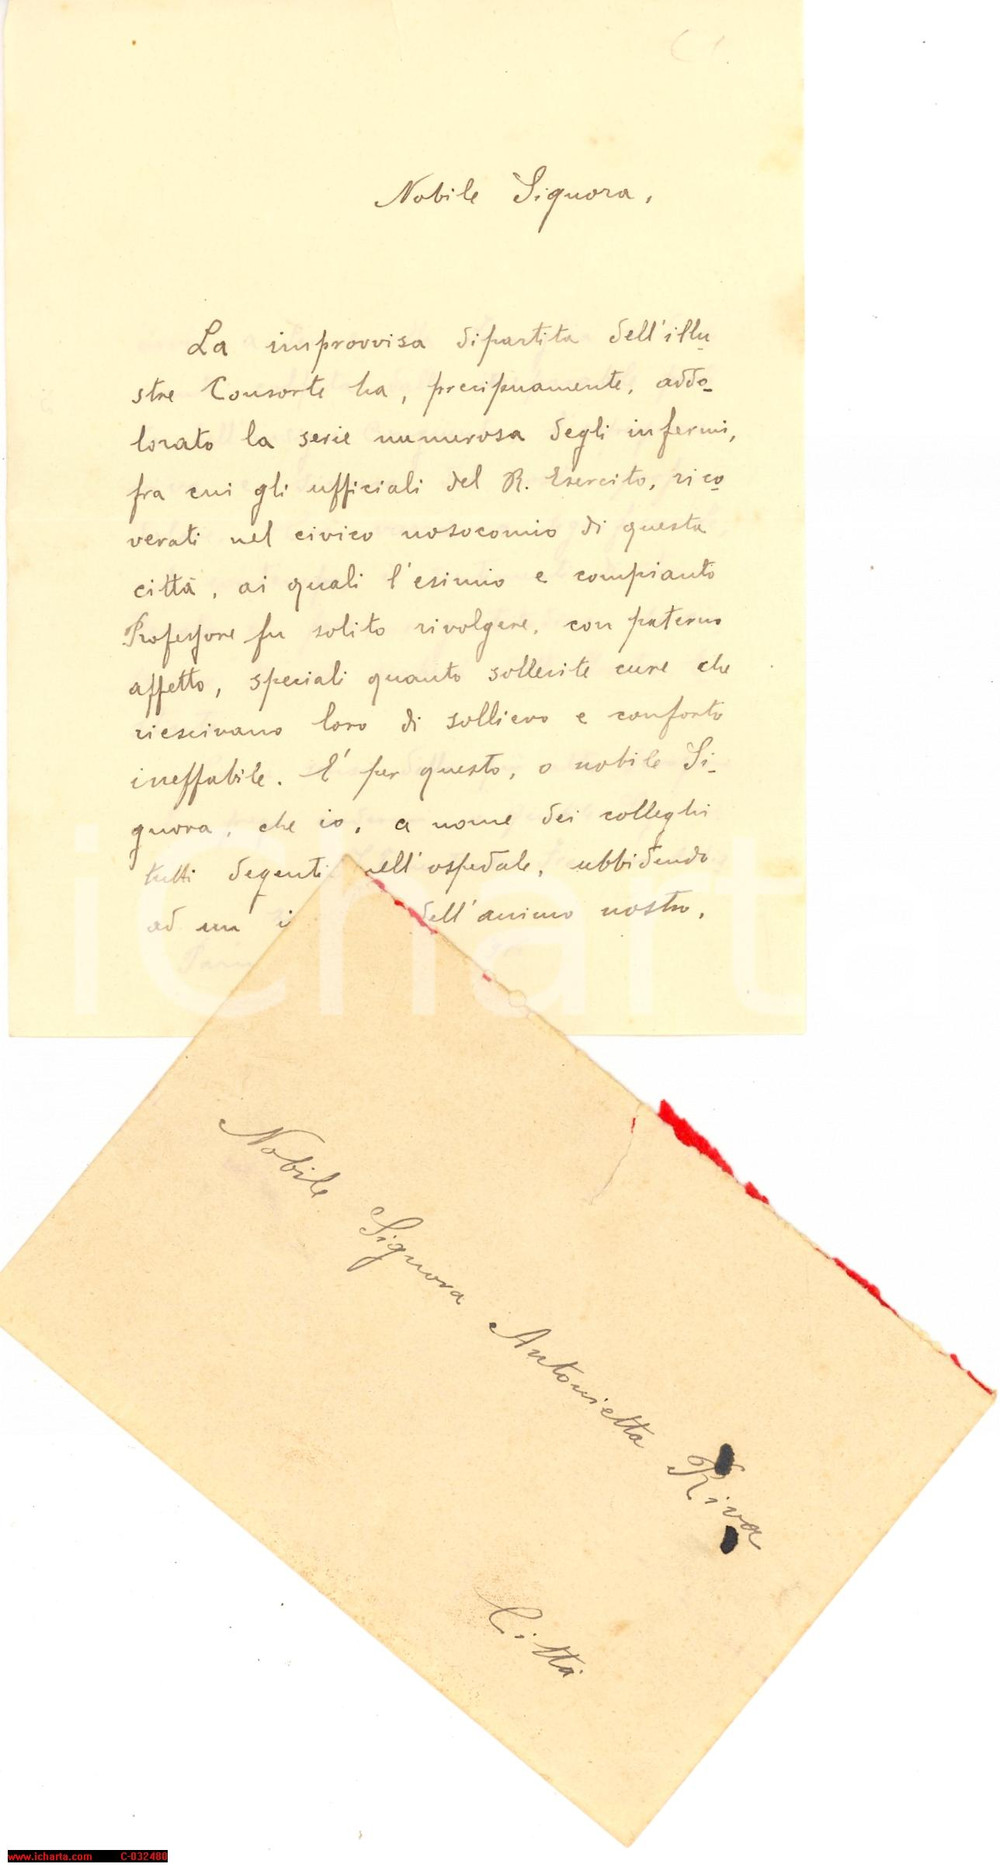 Nobile Signora,
La improvvisa dipartita dell'illu-
stre Consorte ha, precipuamente, addo-
lorato la serie numerosa degli infermi,
fra cui gli ufficiali del R. Esercito, rico-
verati nel civico nosocomio di questa
città, ai quali l'esimio e compianto
Professore fu solito rivolgere, con paterno
affetto, speciali quanto sollecite cure che
riescivano loro di sollievo e conforto
ineffabile. E' per questo, o nobile Si-
gnora, che io, a nome dei colleghi
tutti degenti nell'ospedale, ubbidendo
ad un dell'animo nostro,
Nobile Signora Antonietta Riva
Città
iCharta
www.icharta.com C-032480